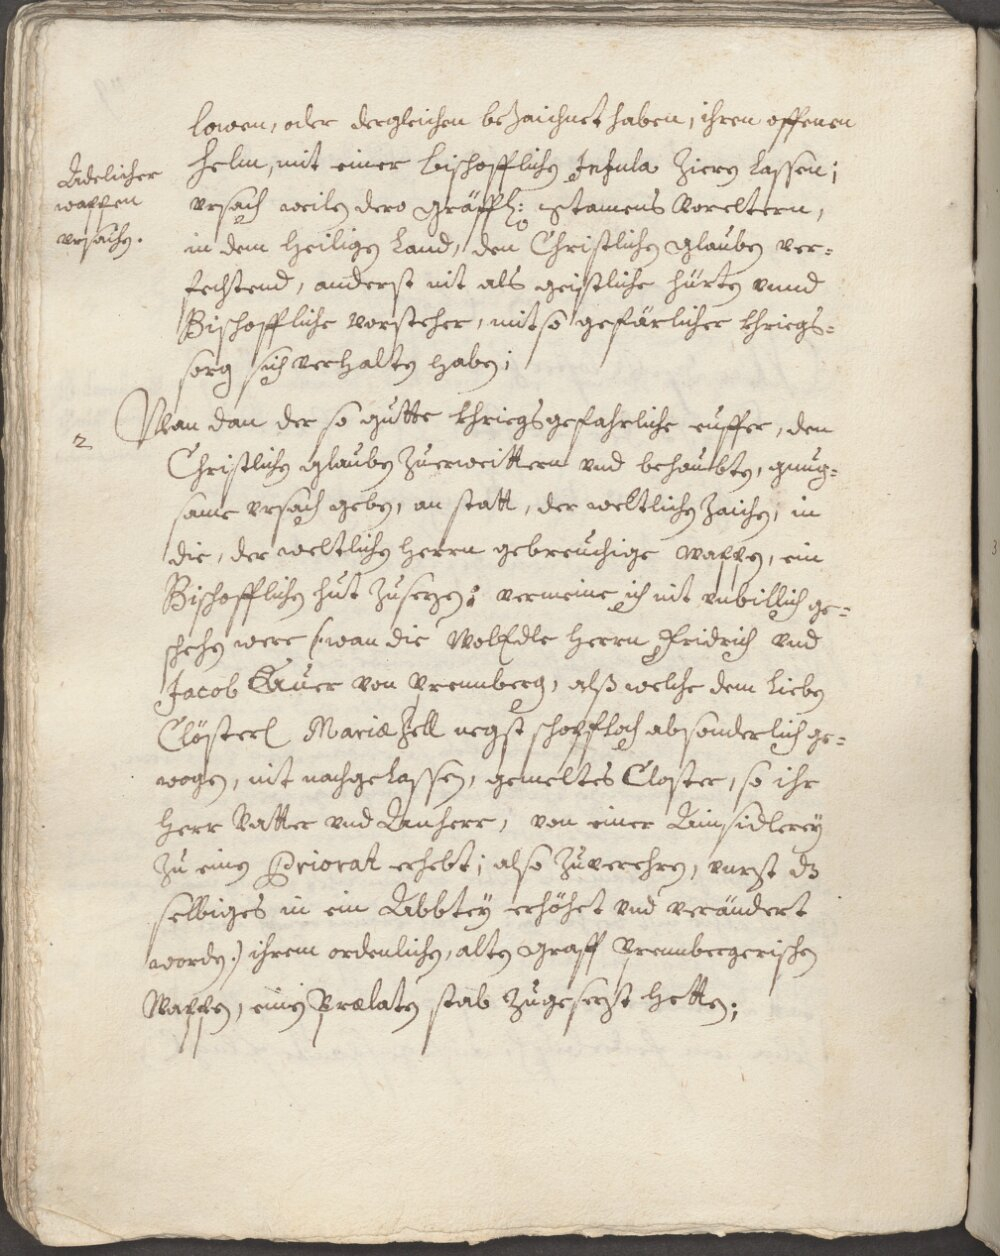 lowen, oder dergleichen bezaichnet haben, ihren offenen
Adelicher
wappen
ursachen.
helm, mit einer bischofflichen Infula zieren lassen;
ursach weilen dero gräffl: stamens Voreltern,
in dem heiligen Land, den Christlichen glauben ver=
fechtend, anderst nit als geistliche hürten unnd
Bischoffliche vorsteher, mit so gefärlicher khriegs=
sorg sich verhalten haben;
2
Wan dan der so gutte khriegsgefahrliche euffer, den
Christlichen glauben zuerweittern und behaubten, gnug=
same ursach geben, an statt, der weltlichen zaichen, in
die, der weltlichen herrn gebreuchige wappen, ein
Bischofflichen hut zusezen: vermeine ich nit unbillich ge=
schehen were (wan die WolEdle herrn Fridrich und
Jacob Gäuer von Prennberg, alß welche dem lieben
Clösterl Mariæ Zell negst schopfloch absonderlich ge=
wogen, nit nachgelassen, gemeltes Closter, so ihr
herr Vatter und Anherr, von einer Ainsidlerey
zu einen Priorat erhebt; also zuverehren, unzt dz
selbiges in ein Abbtey erhöhet und verändert
worden.) ihrem ordenlichen, alten graff Prennbergerischen
Wappen, einen Prælaten stab zugesezt hetten;